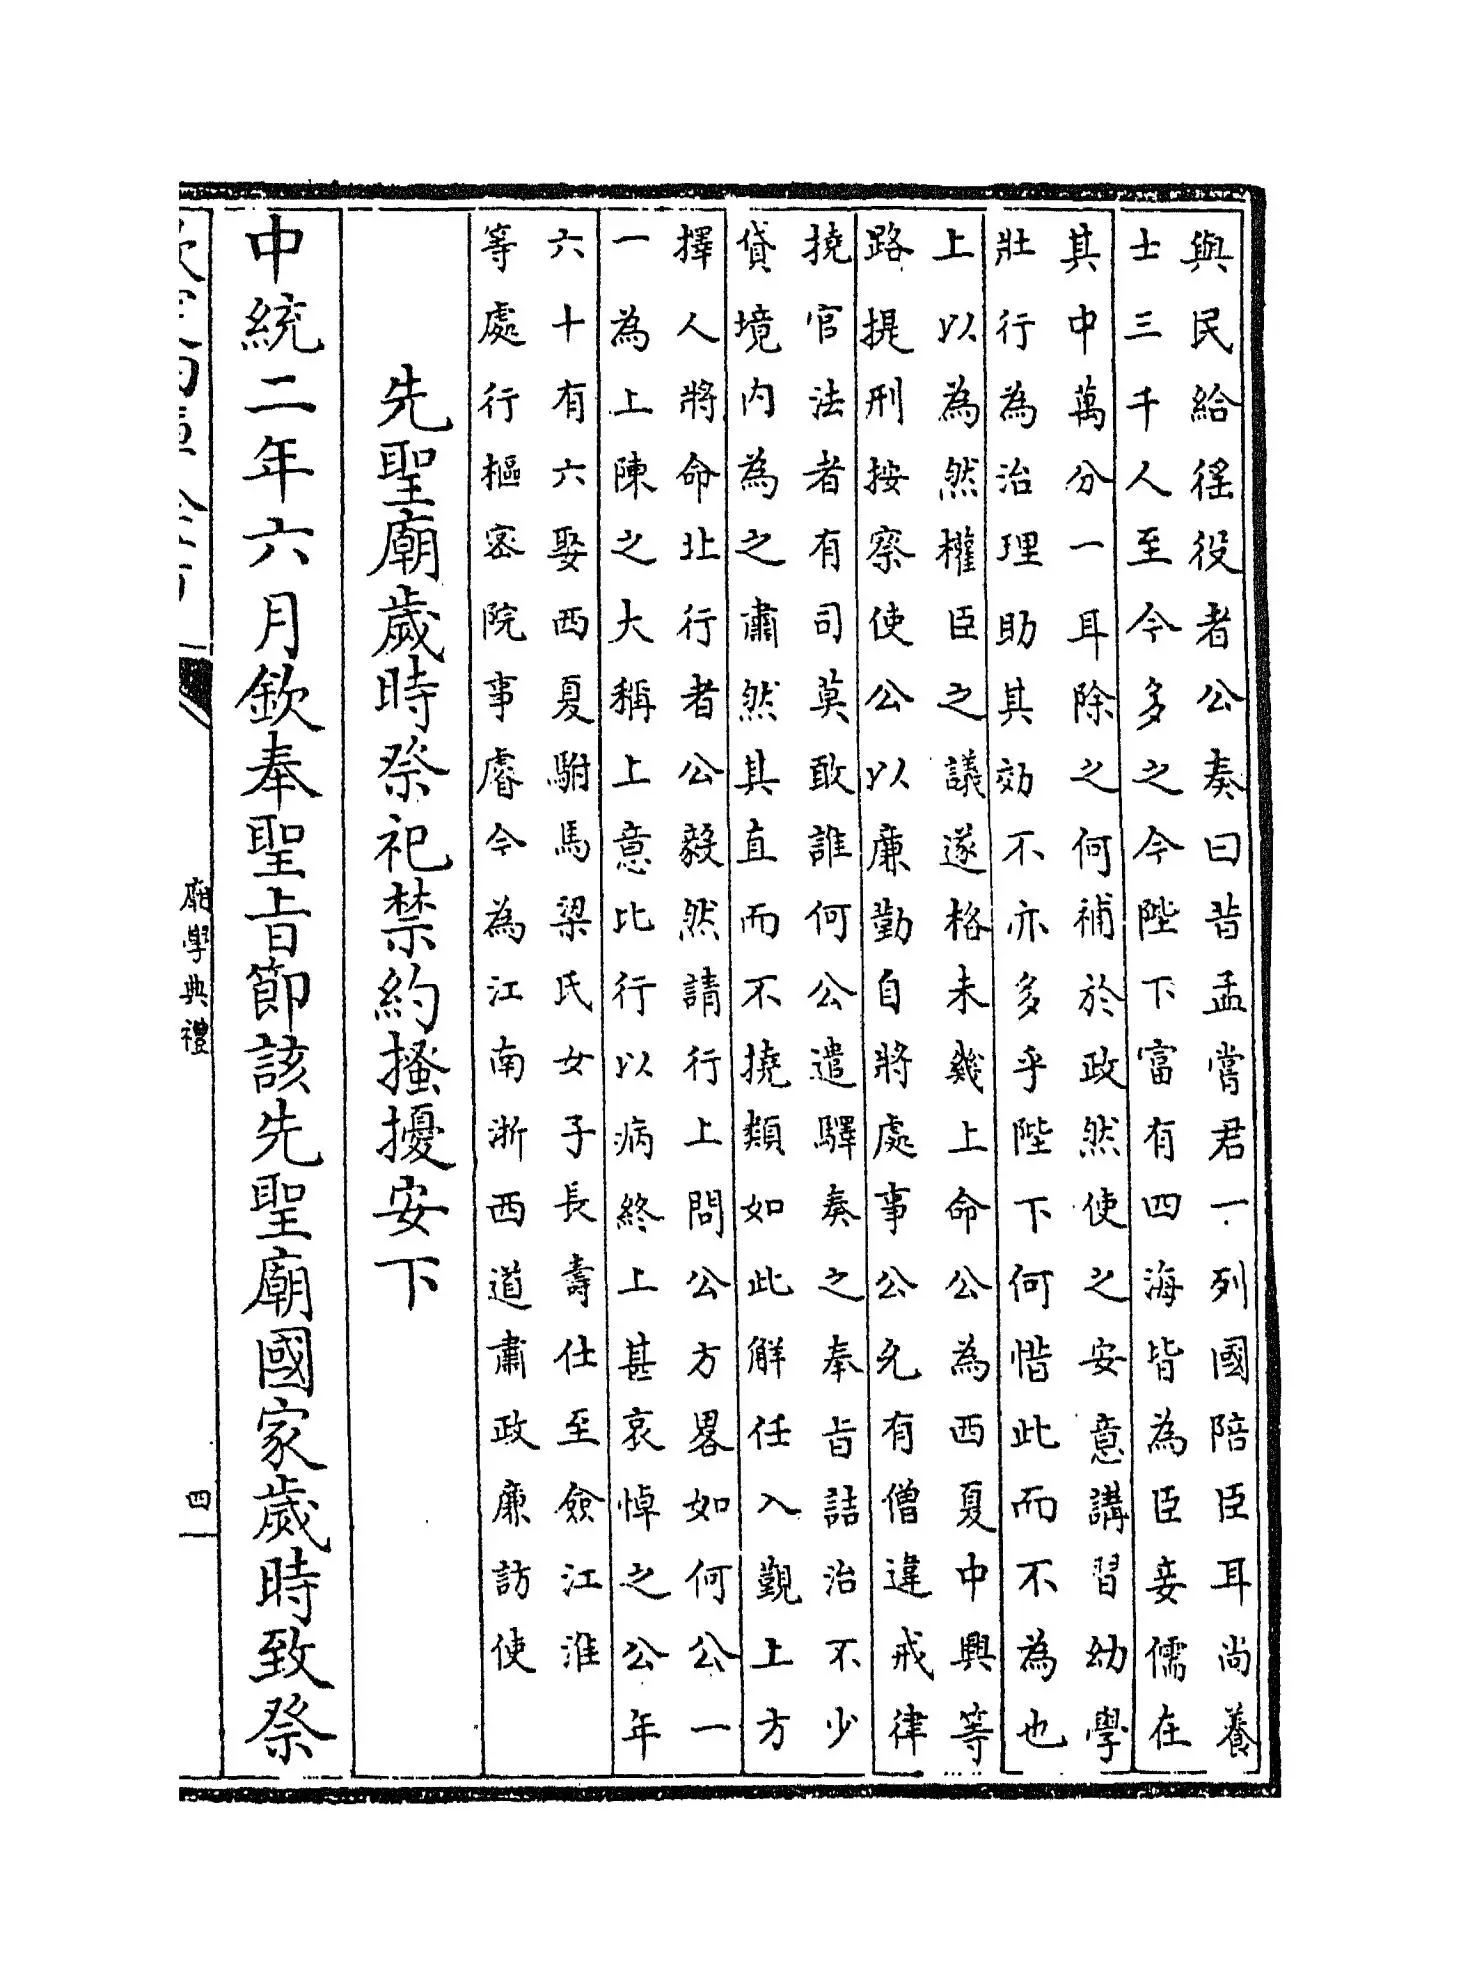 與民給徭役者公奏曰昔孟嘗君一列國陪臣耳尚養
士三千人至今多之今陛下富有四海皆為臣妾儒在
其中萬分一耳除之何補於政然使之安意講習幼學
壯行為治理助其効不亦多乎陛下何惜此而不為也
上以為然權臣之議遂格未幾上命公為西夏中興等
路提刑按察使公以廉勤自將處事公允有僧違戒律
撓官法者有司莫敢誰何公遣驛奏之奉旨詰治不少
貸境内為之肅然其直而不撓類如此解任入覲上方
擇人將命北行者公毅然請行上問公方畧如何公一
一為上陳之大稱上意比行以病終上甚哀悼之公年
六十有六娶西夏駙馬梁氏女子長壽仕至僉江淮
等處行樞密院事處今為江南浙西道肅政廉訪使
先聖廟歲時祭祀禁約搔擾安下
中統二年六月欽奉聖旨節該先聖廟國家歲時致祭
廟學典禮
四